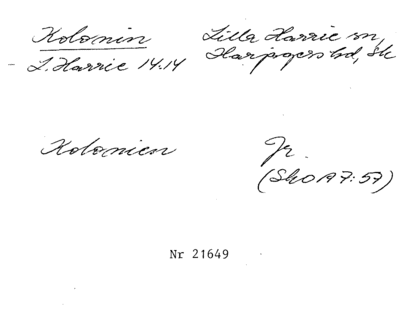 Kolonin Lilla Harrie sn,
L. Harrie 14.14 Harjagers hd, Sk
Kolonien Jr.
(SkO A7:57)
Nr 21649